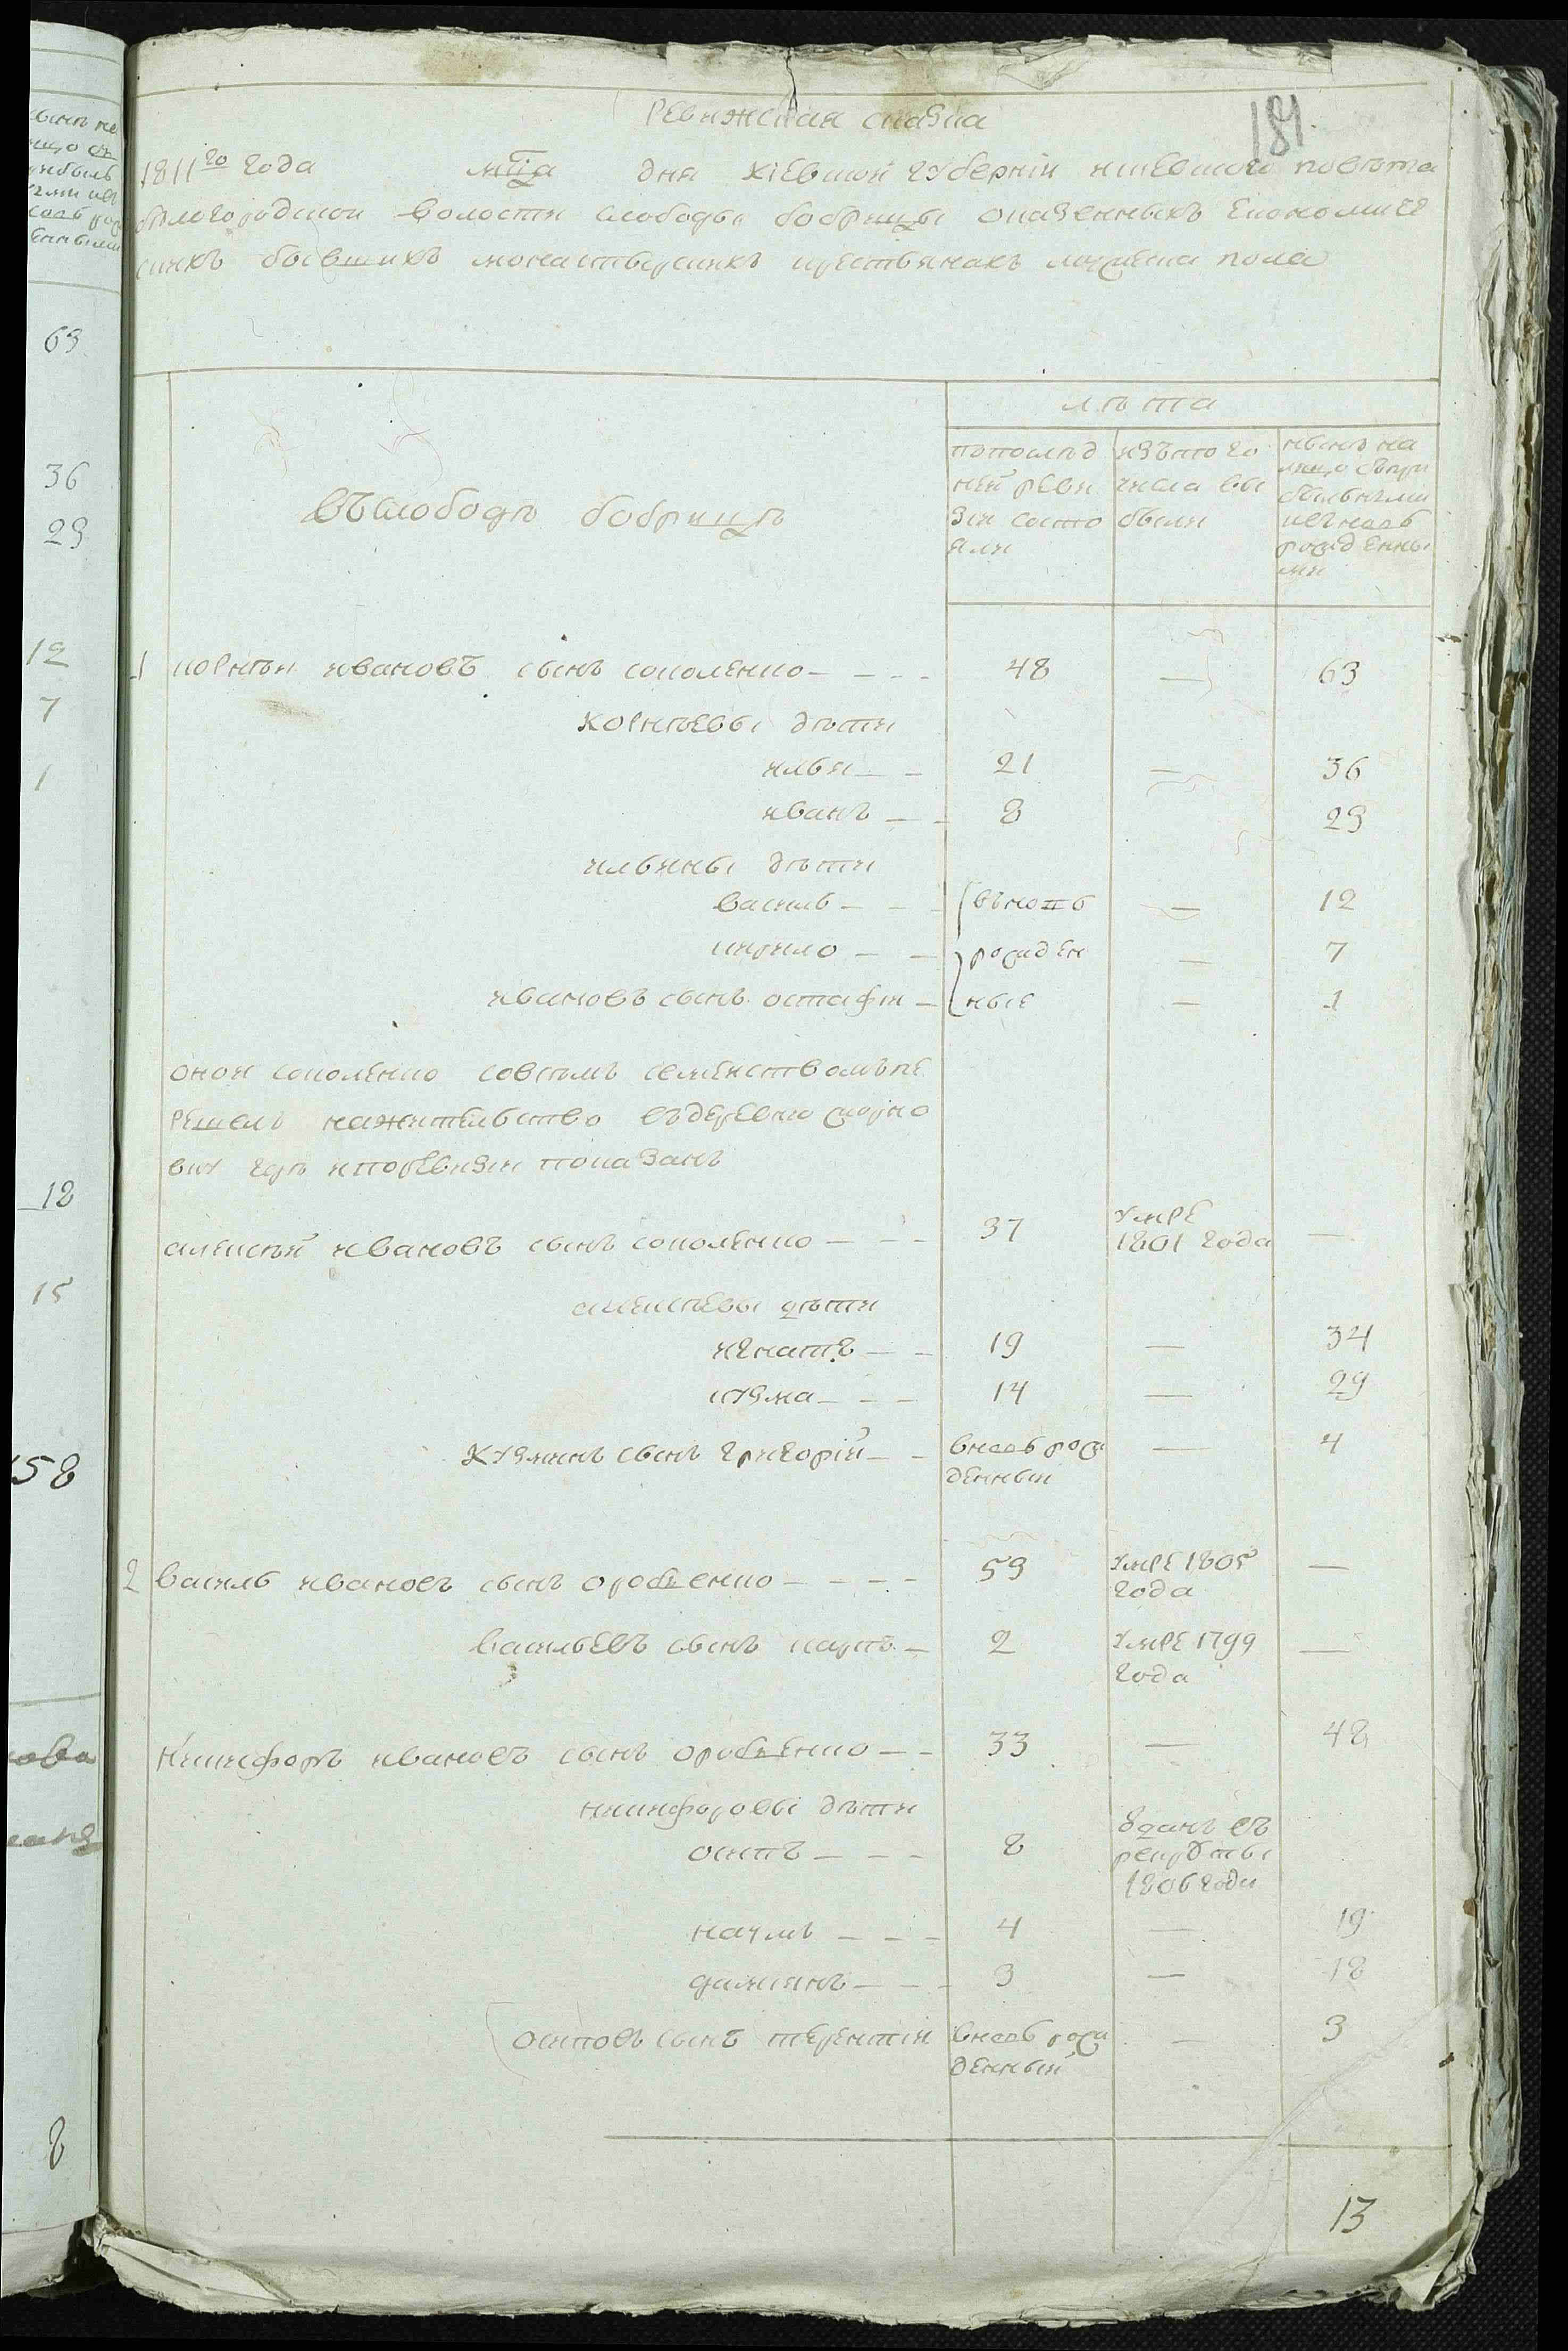 Ревижская сказка
181
1811го года мца дня Кіевской губерніи Кіевского повета
белогородской волости слободы бобрицы оказенныхъ економиче
скихъ бывшихъ монастырскихъ крестьянахъ мужеска пола
лѣта
въслободѣ бобрицѣ
попослѣд
ней реви
зіи состо
яли
изътого
числа вы
были
нынѣ на
лицо съпри
былыми
ивновь
рожденны
ми
1 корнѣй ивановъ сынъ соколенко 48 — 63
корнѣевы дѣти
илья 21 — 36
иванъ 8 29
ильины дѣти
василь вьновь — 12
кирило рожден — 7
ивановъ сынъ остафій ные — 1
оной соколенко совсѣмъ семействомъ пе
решелъ нажительство въдеревню
где иторевизіи показанъ
алексѣй ивановъ сынъ соколенко 37 умре
1801 года —
алексѣевы дѣти
игнатъ 19 — 34
кузма 14 — 29
кузминъ сынъ григорій вновь рож
денный — 4
2 василь ивановъ сынъ 59 умре 1805
года —
васильевъ сынъ карпъ 2 умре 1799
года —
никифоръ ивановъ сынъ 33 — 48
никифоровы дѣти
осипъ 8 вданъ въ
рекруты
1806 года
наумъ 4 — 19
даміянъ 3 — 18
осиповъ сынъ терентій вновь рож
денный — 3
13
63
36
29
12
7
1
12
15
158
8